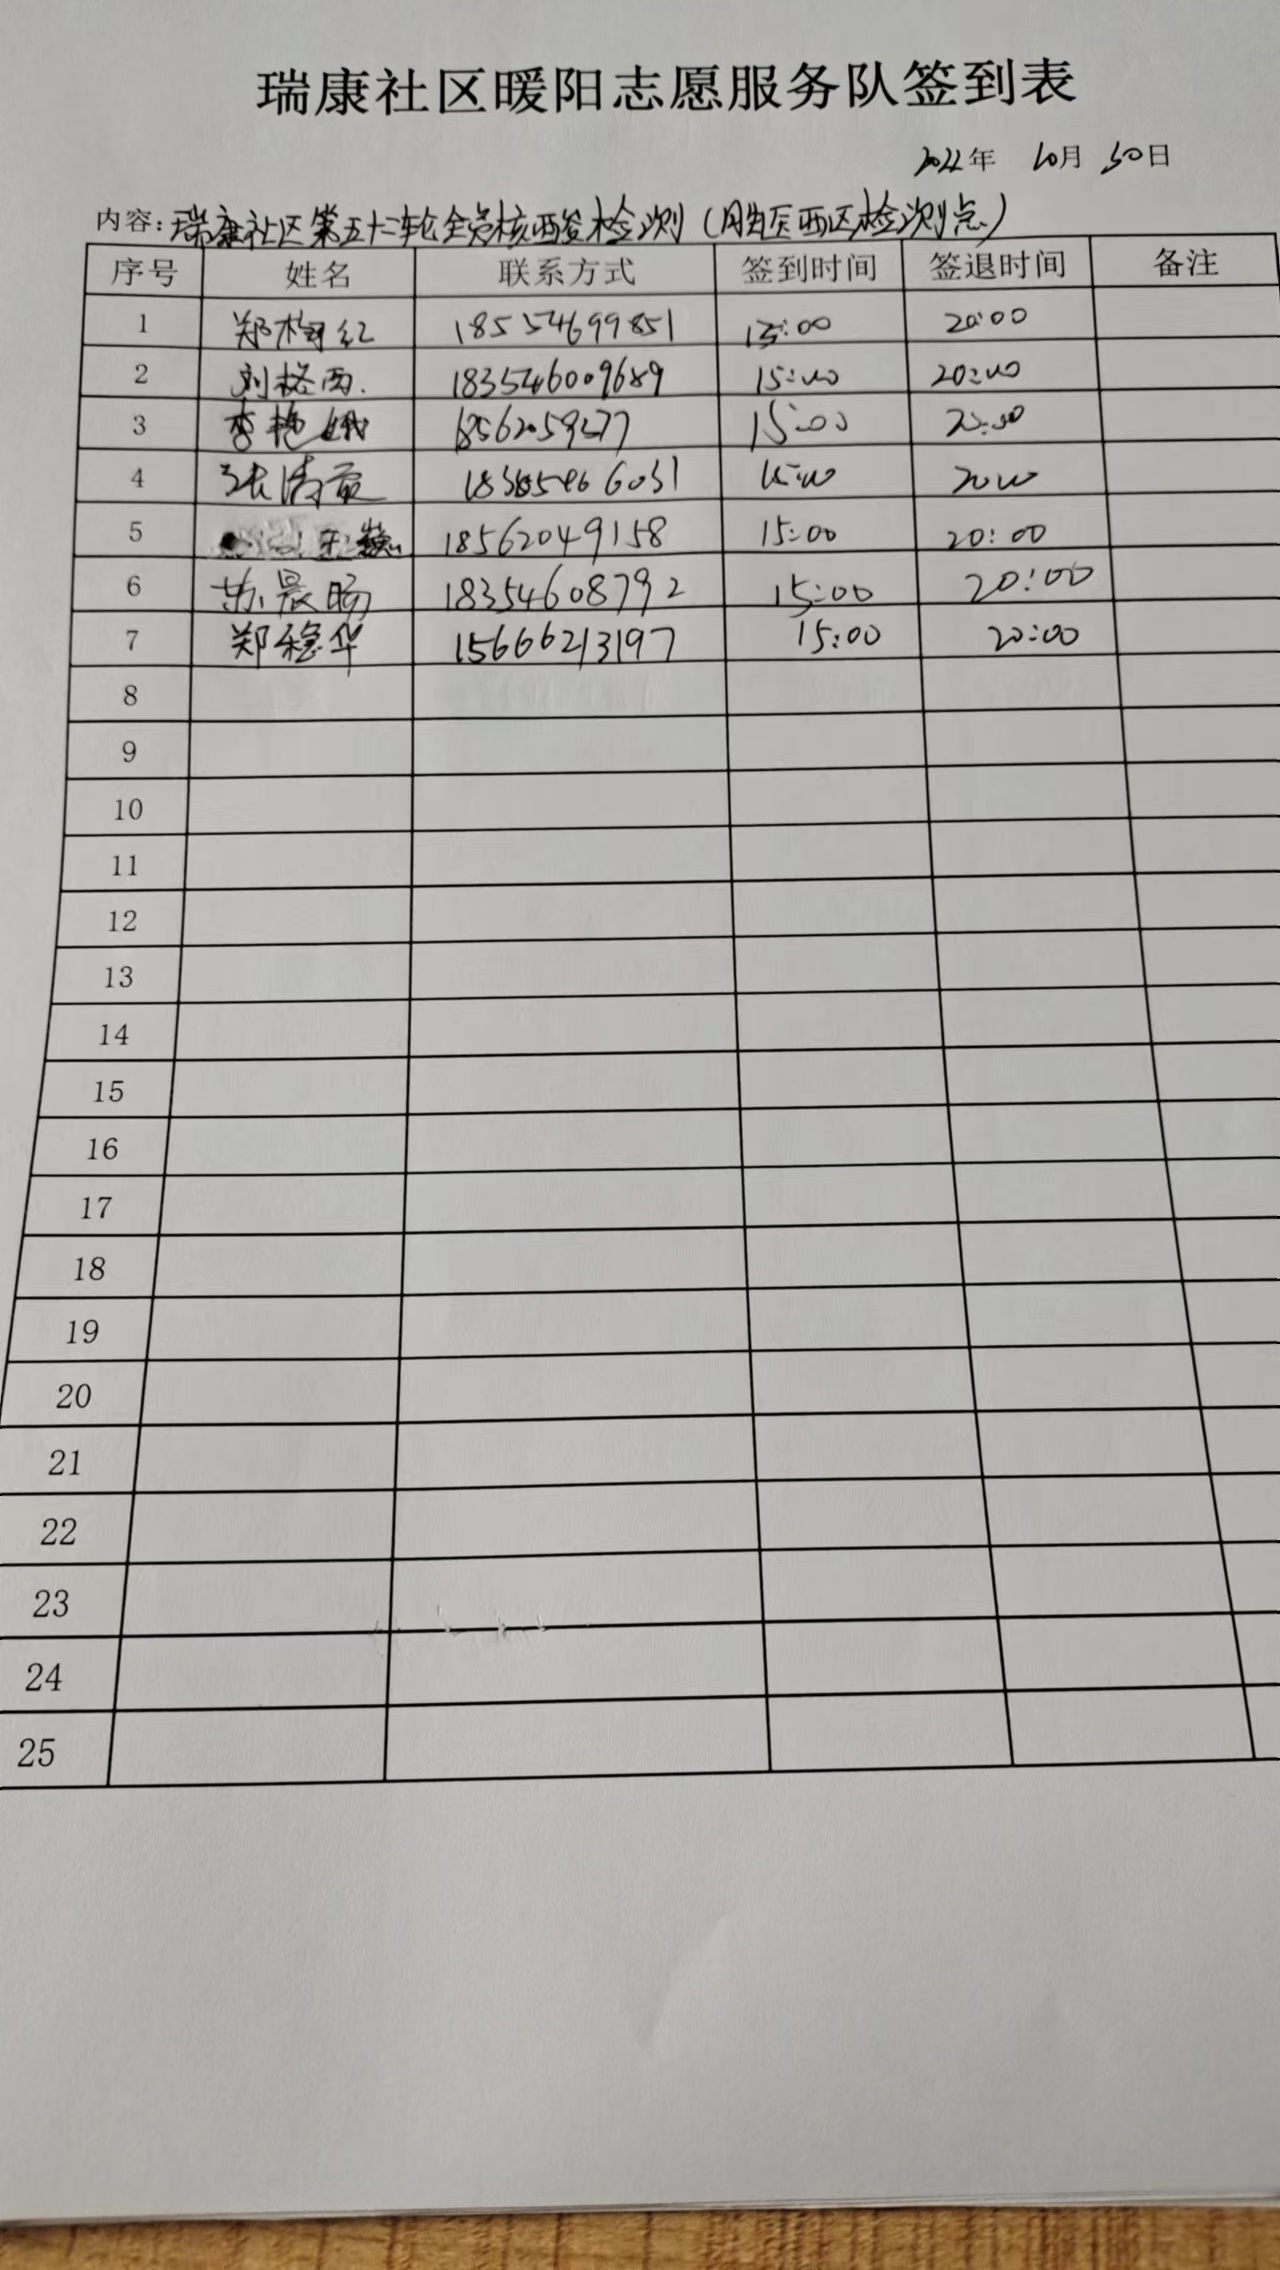 瑞康社区暖阳志愿服务队签到表
2022年 10月 30日
内容：瑞康社区第五十二轮全员核酸检测（西区检测点）
序号 姓名 联系方式 签到时间 签退时间 备注
1 郑梅红 18554699851 15:00 20:00
2 刘格西 183546009689 15:00 20:00
3 李艳娥 15:00 20:00
4 张清 15:00 20:00
5 王 18562049158 15:00 20:00
6 苏晨旸 18354608792 15:00 20:00
7 郑稳华 15666213197 15:00 20:00
8
9
10
11
12
13
14
15
16
17
18
19
20
21
22
23
24
25